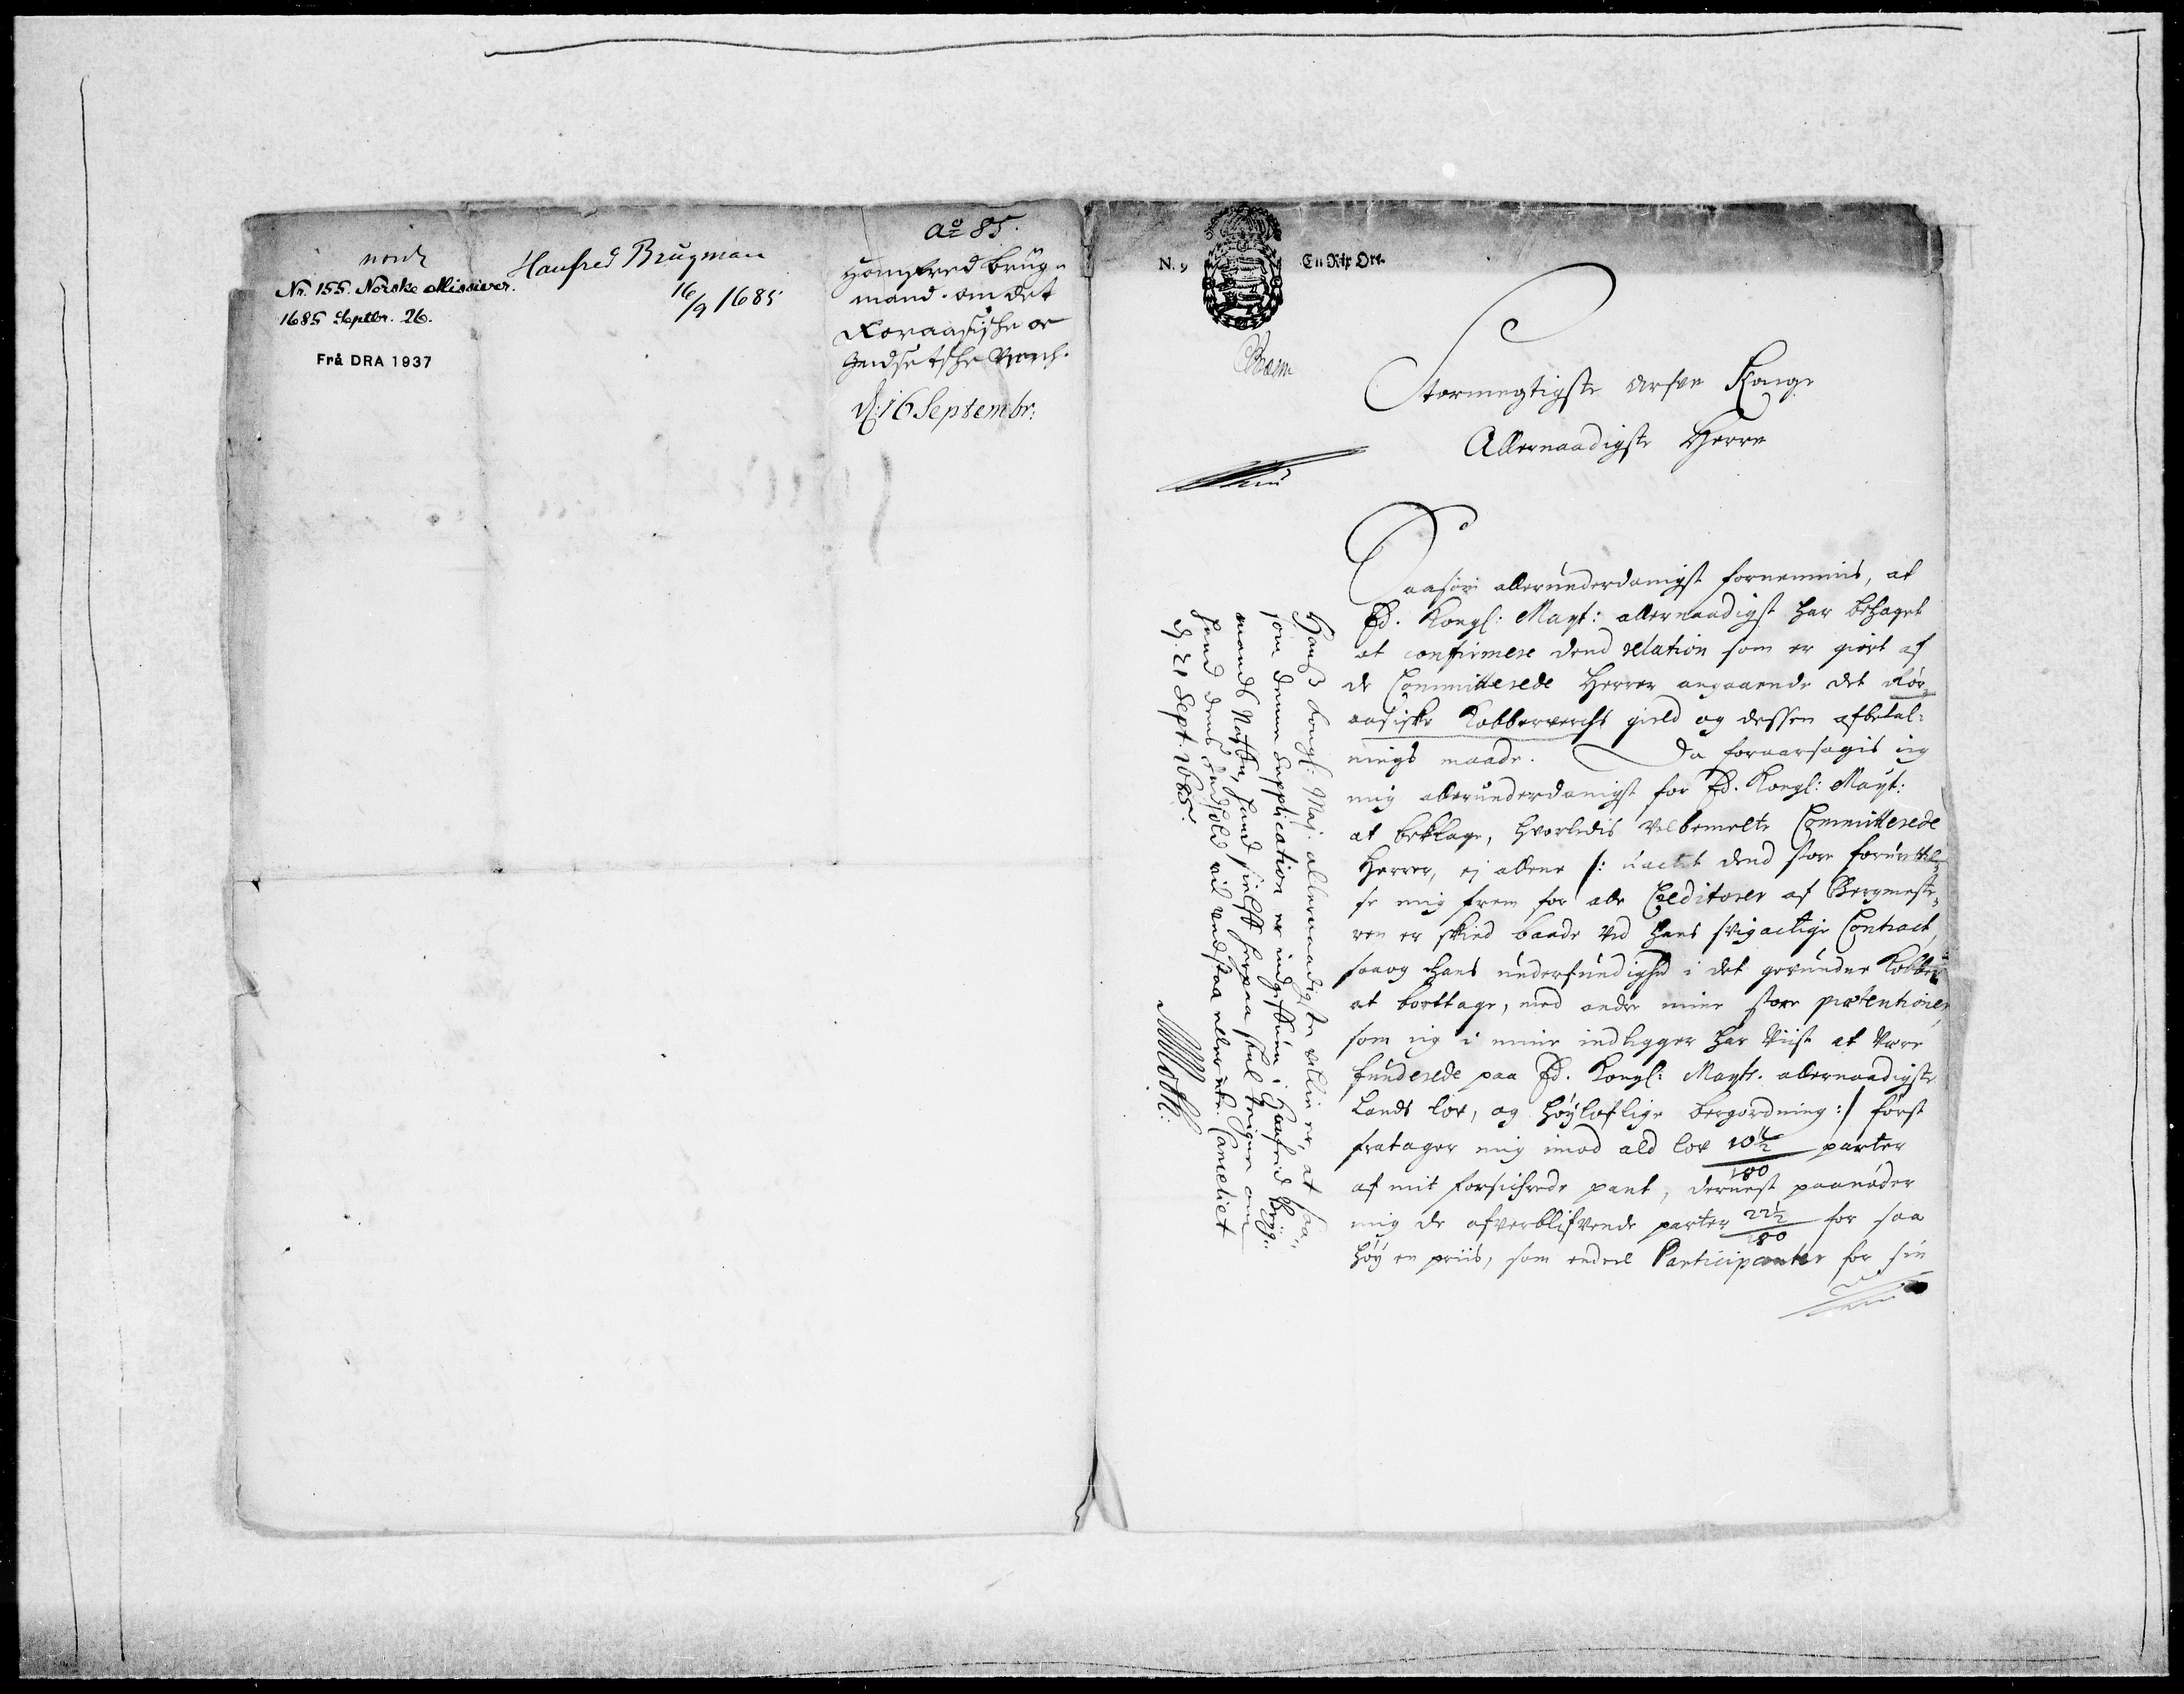 Nr. 155. Norske Missiver.
1685 Septbr. 26.
Frå DRA 1937
Hanfred Brugman
16/9 1685
Ao 85.
Hanfred Brüg-
mand. om det
Roraasiske oc
Indsetske Werch.
d: 16 Septembr:
N. 9 En Rix Ort.
Stormegtigste Arfve Konge
Allernaadigste Herre
Saasom allerunderdanigst fornemmis, at
Ed. Kongl: Mayt: allernaadigst har behaget
at confirmere dend relation som er giort af
de Committerede Herrer angaaende det Rør
aasiske Kobberverchs gield og dessen afbetal-
nings maade. Da foraarsagis ieg
mig allerunderdanigst for Ed. Kongl: Mayt:
at beklage, hvorledis velbemelte Committerede
Herrer, ej allene /: uactet dend store
se mig frem for alle Creditorer af Bergmeste-
ren er skied baade ved hans svigactige Contract,
saaog hans underfundighed i det gevundne Kobber
at borttage, med andre mine store prætentioner,
som ieg i mine indlegger har viist at være
funderede paa Ed. Kongl: Mayts. allernaadigste
Lands lov, og høyloflige bergordning :/ først
fratager mig imod ald lov 10½/180 parter
af mit forsichrede pant, dernest paanøder
mig de ofverblifvende parter 22½/180 for saa
høy en priis, som endeel Participanter for sin
Hans Kongl: Maj. allernaadigste villie er, at saa-
som denne Supplication er indgifven i Hanfred Brüg-
mands Nafn, hand sielff herpaa skal tegne om
hand dens indhold vil vedstaa eller ede. Canceliet
d. 21 Sept. 1685.
MMoth: